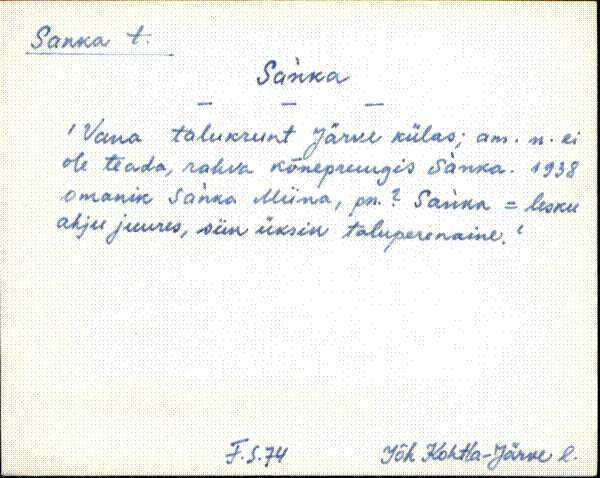 Sanka t.
Sànka
— — —
'Vana talukrunt Järve külas; am. n. ei
ole teada, rahva kõnepruugis Sànka. 1938
omanik Sànka Miina, pn.? Sànka = lesku
ahju juures, siin üksin taluperenaine.'
F.S.74 Jõh Kohtla-Järve l.